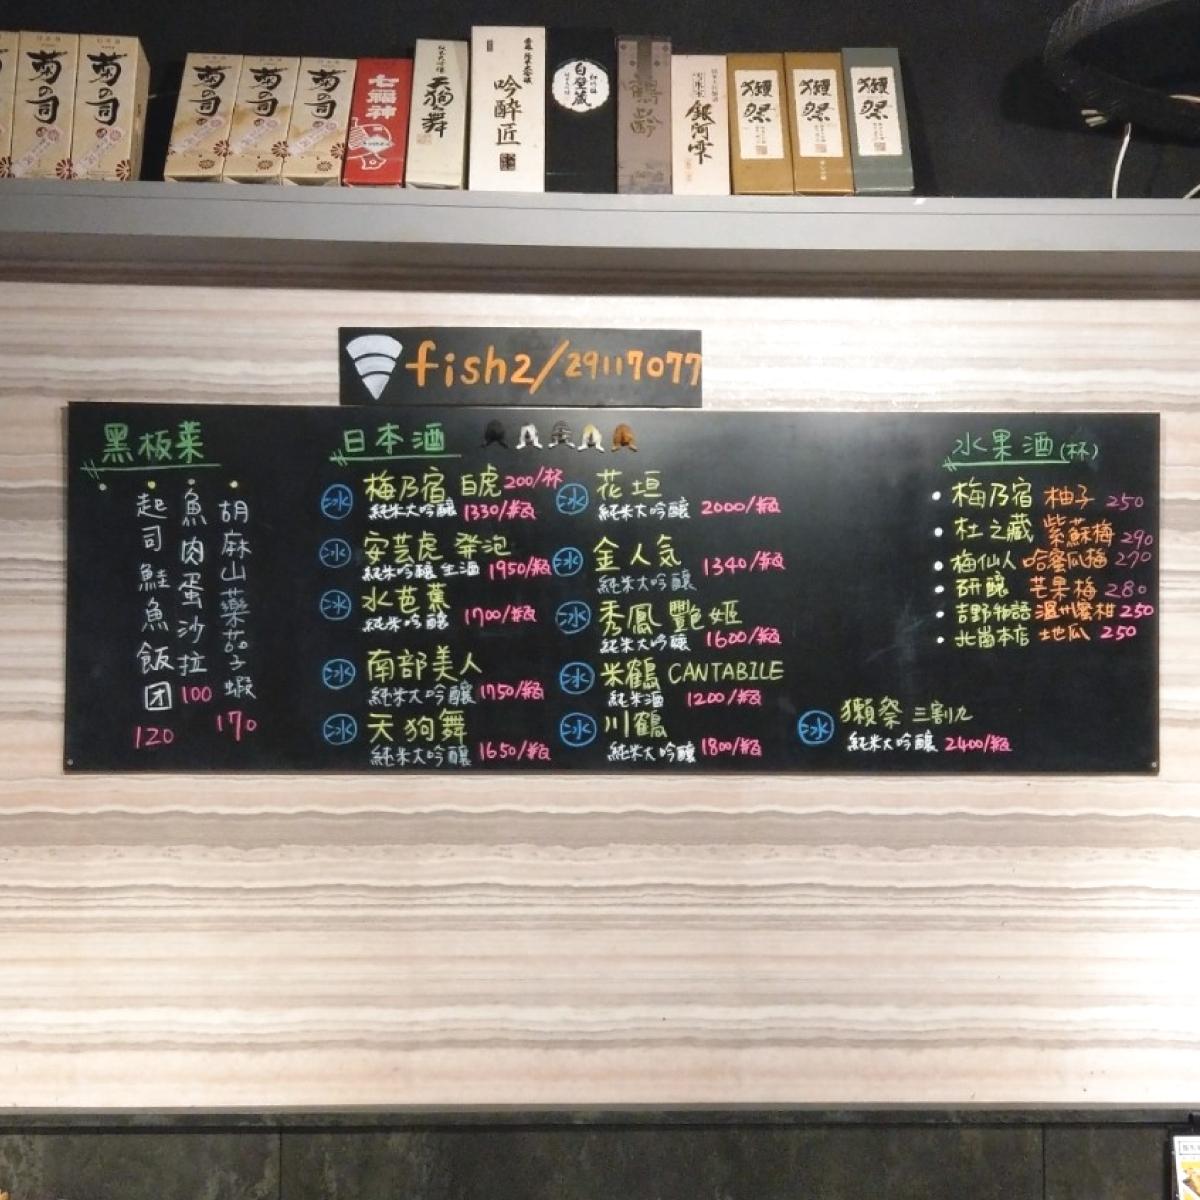 菊の司
菊の司
菊の司
菊の司
菊の司
七福神
天狗舞
吟醉匠
白壁蔵
鶴齢
銀河雫
獺祭
獺祭
獺祭
fish2/29117077
黑板菜
起司鮭魚飯団
120
魚肉蛋沙拉
100
胡麻山藥茄子蝦
170
日本酒
冰 梅乃宿 白虎 200/杯
純米大吟釀 1330/瓶
冰 安芸虎 発泡
純米吟釀 生酒 1950/瓶
冰 水芭蕉
純米吟釀 1700/瓶
冰 南部美人
純米大吟釀 1750/瓶
冰 天狗舞
純米大吟釀 1650/瓶
冰 花垣
純米大吟釀 2000/瓶
冰 金人気
純米大吟釀 1340/瓶
冰 秀鳳 艷姬
純米大吟釀 1600/瓶
冰 米鶴 CANTABILE
純米酒 1200/瓶
冰 川鶴
純米大吟釀 1800/瓶
冰 獺祭 三割九
純米大吟釀 2400/瓶
水果酒(杯)
• 梅乃宿 柚子 250
• 杜之蔵 紫蘇梅 290
• 梅仙人 哈蜜瓜梅 270
• 研釀 芒果梅 280
• 吉野物語 温州蜜柑 250
• 北崗本店 地瓜 250